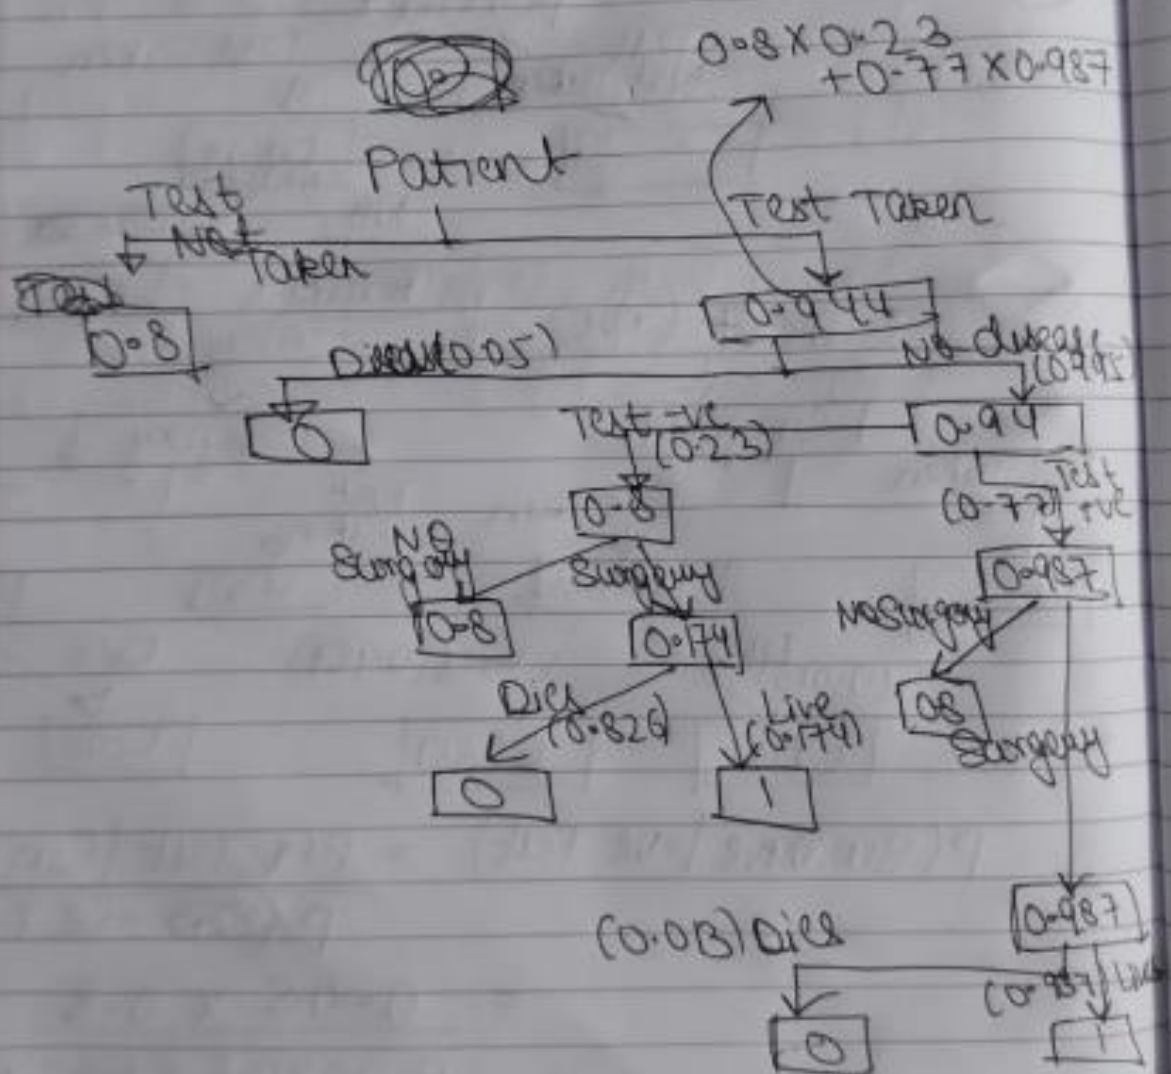 0.8 X 0.23
+0.77 X 0.987
Patient
Test
Not
Taken
Test Taken
0.8
0.944
Disease(0.05)
No disease
0
Test -ve
(0.23)
0.94
Test
+ve
(0.77)
0.8
0.987
No
Surgery
Surgery
No Surgery
0.8
0.174
0.8
Surgery
Dies
(0.826)
Live
(0.174)
0
1
0.987
(0.013) Dies
(0.987)
0
1